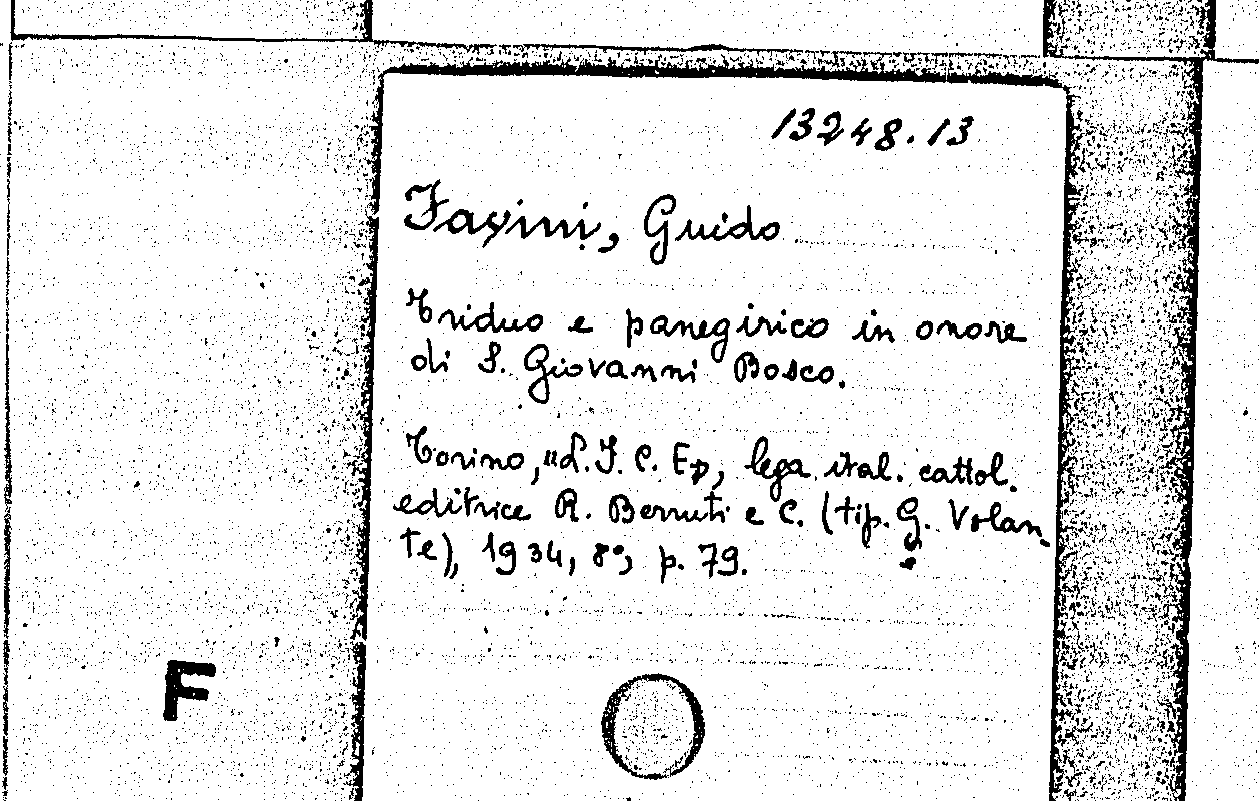 13248.13
Favini, Guido
Triduo e panegirico in onore
di S. Giovanni Bosco.
Torino, "L.I.C.E.", lega ital. cattol.
editrice R. Berruti e C. (tip. G. Volan-
te), 1934, 8°, p. 79.
F